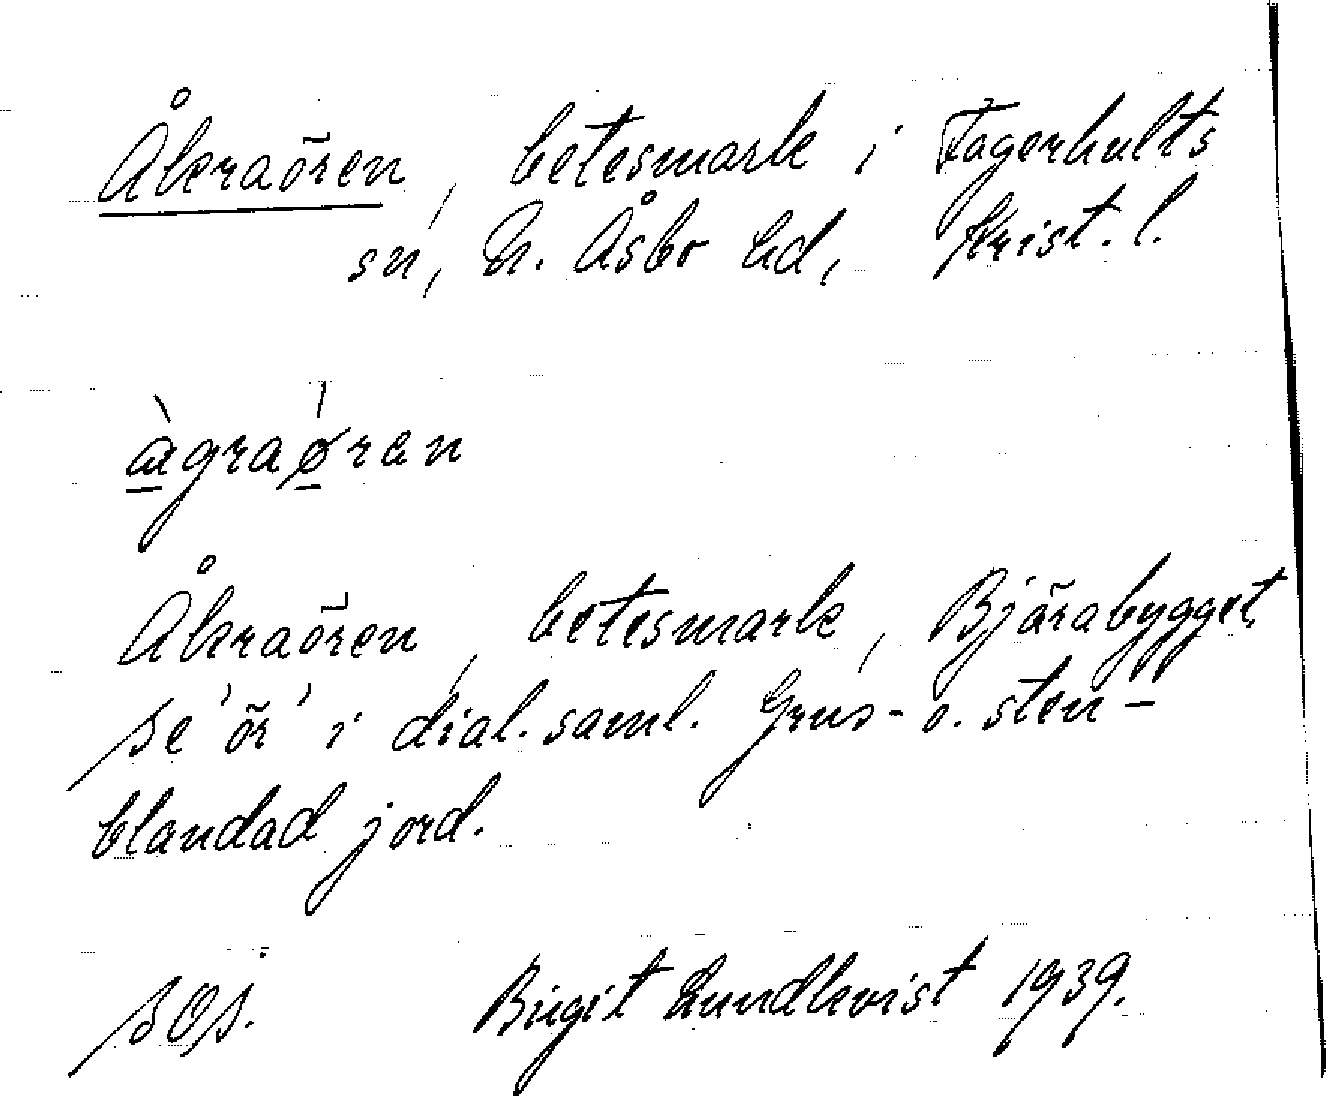 Åkraören, betesmark i Fagerhults
sn, N. Åsbo hd, Krist. l.
àgraøren
Åkraören, betesmark, Bjärabygget,
se 'ör' i dial. saml. Grus- o. sten-
blandad jord.
Birgit Lundkvist 1939.